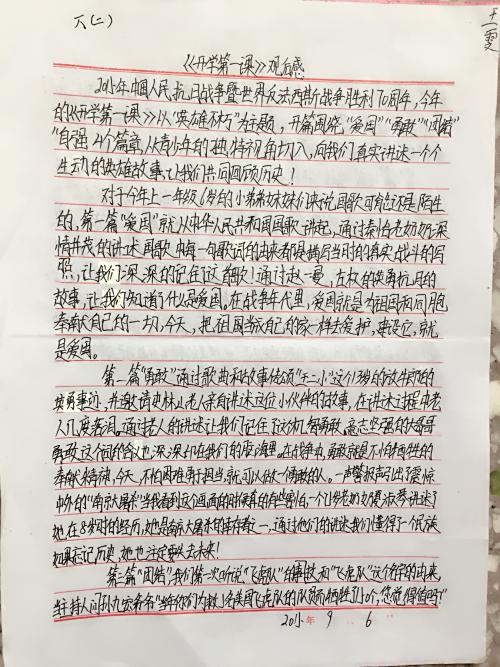 六(二)
王雯
《开学第一课》观后感
2015年中国人民抗日战争暨世界反法西斯战争胜利70周年,今年
的《开学第一课》以"英雄不朽"为主题,开篇围绕"爱国""勇敢""团结"
"自强"4个篇章,从青少年的独特视角切入,向我们真实讲述一个个
生动的英雄故事,让我们共同回顾历史!
对于今年上一年级6岁的小弟弟妹妹们来说国歌可能还是陌生
的,第一篇"爱国"就从中华人民共和国国歌讲起,通过秦怡老奶奶深
情并茂的讲述国歌中每一句歌词的由来都是描写当时的真实战斗的写
照,让我们深深的记住了这首歌!通过赵一曼,左权的英勇抗日的
故事,让我们知道了什么是爱国。在战争年代里,爱国就是为祖国和同胞
奉献自己的一切,今天,把祖国当自己的家一样去爱护,建设它,就
是爱国。
第二篇"勇敢"通过歌曲和故事传颂"王二小"这个13岁的放牛郎的
英勇事迹,并邀请史林山老人亲自讲述这位小伙伴的故事,在讲述过程中老
人几度落泪。通过老人的讲述让我们记住了这位机智勇敢、意志坚强的大哥哥
勇敢这个词的含义也深深印在我们的脑海里。在战争中,勇敢就是不怕牺牲的
奉献精神,今天,不怕困难勇于担当,就可以做一个勇敢的人。一声警报声引出了震惊
中外的"南京大屠杀"当我看到这个画面的时候真的有些害怕,一个86岁老奶奶夏淑琴讲述了
她在8岁时的经历,她是南京大屠杀的幸存者之一,通过他们的讲述我们懂得了一个民族
如果忘记历史,她也注定要失去未来!
第三篇"团结"我们第一次听说"飞虎队"的事迹和"飞虎队"这个名字的由来,
当主持人问孙九宏爷爷"当年你们为救1名美国飞虎队的队员而牺牲了10个,您觉得值吗?"
2015年 9 6